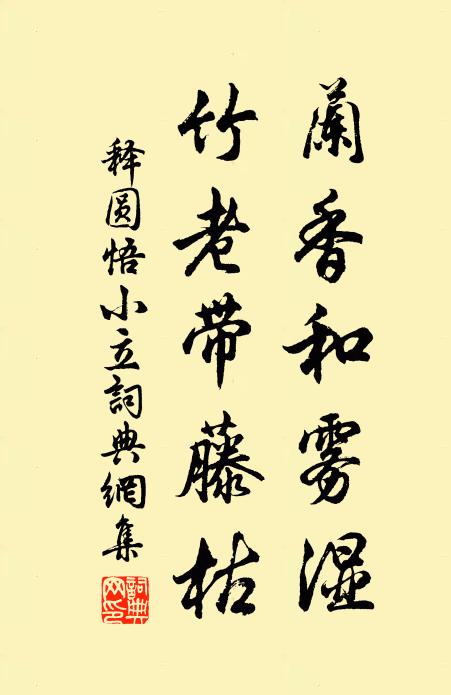 蘭香和雾湿
竹老带藤枯
释圆悟小立詞典網集
詞典網印